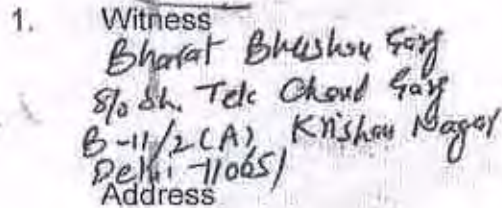 1. Witness
Bharat Bhushan Garg
S/o Sh. Tek Chand Garg
B-11/2 (A), Krishan Nagar
Delhi-110051
Address